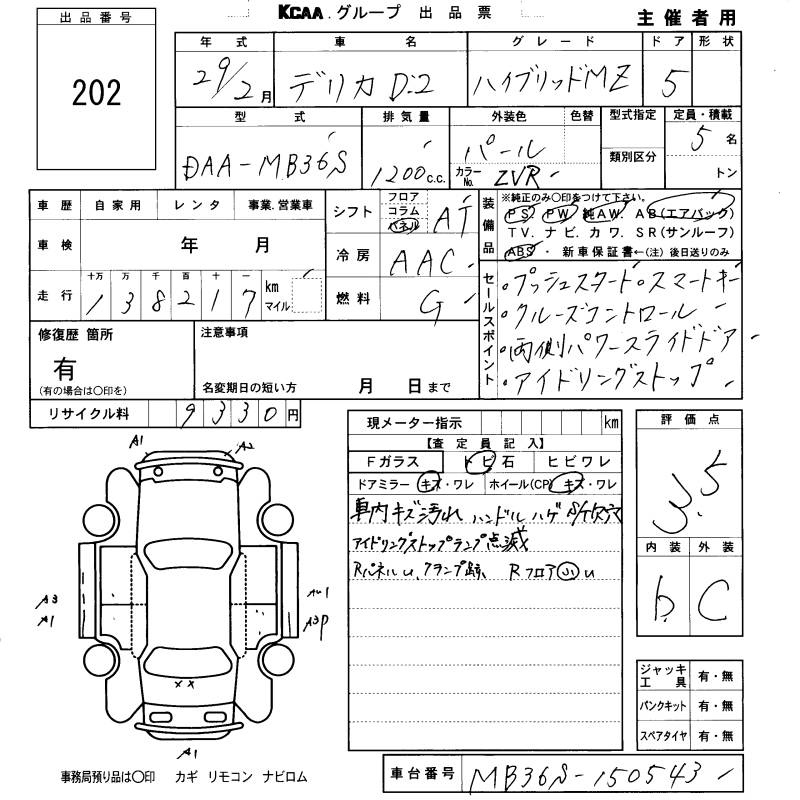 KCAA.グループ 出品票
主催者用
出品番号
202
年式 車名 グレード ドア 形状
29/2月 デリカD:2 ハイブリッドMZ 5
型式 排気量 外装色 色替 型式指定 定員・積載
DAA-MB36S 1200c.c. パール 5名
カラーNo. ZVR 類別区分 トン
車歴 自家用 レンタ 事業.営業車
車検 年 月
走行 十万 万 千 百 十 一
138217 km マイル
シフト フロア コラム パネル AT
冷房 AAC
燃料 G
装備品 ※純正のみ○印をつけて下さい。
PS PW 純AW. AB(エアバック)
TV. ナビ. カワ. SR(サンルーフ)
ABS ・ 新車保証書←(注) 後日送りのみ
セールスポイント
・プッシュスタート・スマートキー
・クルーズコントロール
・両側パワースライドドア
・アイドリングストップ
修復歴 箇所
有
(有の場合は○印を)
注意事項
名変期日の短い方 月 日まで
リサイクル料 9330円
現メーター指示 km
【査定員記入】
Fガラス トビ石 ヒビワレ
ドアミラー キズ・ワレ ホイール(CP) キズ・ワレ
車内キズ汚れ ハンドルハゲ
アイドリングストップランプ点滅
Rパネルu、クランプ跡、 Rフロア小u
評価点
3.5
内装 外装
b C
ジャッキ工具 有・無
パンクキット 有・無
スペアタイヤ 有・無
A1
A2
A3
A1
A3P
XX
A1
事務局預り品は○印 カギ リモコン ナビロム
車台番号 MB36S-150543